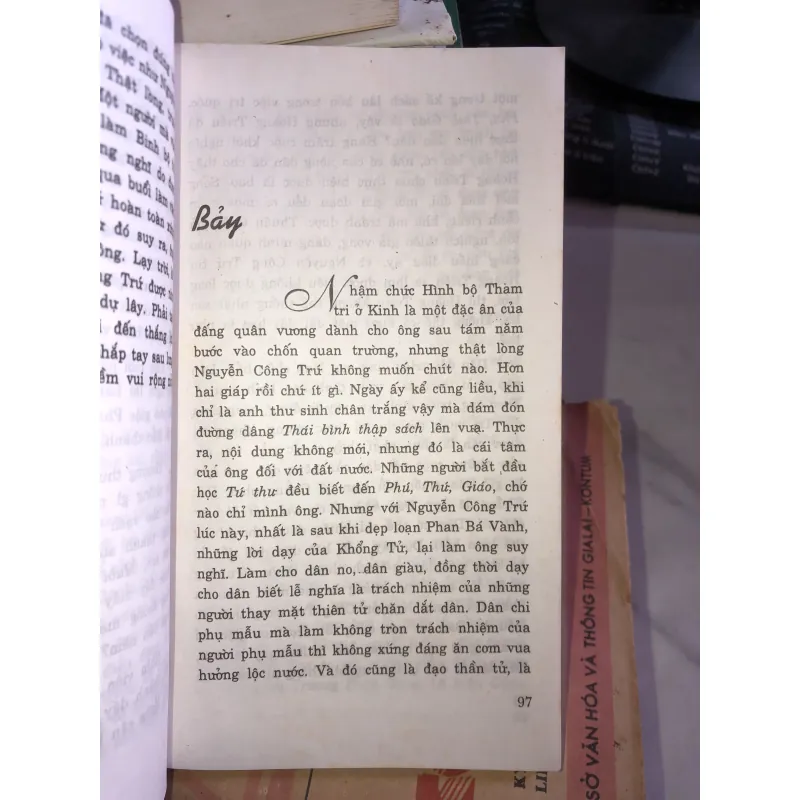 ta chọn đúng
việc như
Thật lòng,
Một người mà
làm Binh bộ
nghĩ do
qua buổi làm
hoàn toàn
đó suy ra,
ông. Lạy trời
Trứ được
dự lây. Phải
đến thắng
chắp tay sau
vui rộng
Bảy
Nhậm chức Hình bộ Thàm
tri ở Kinh là một đặc ân của
đấng quân vương dành cho ông sau tám năm
bước vào chốn quan trường, nhưng thật lòng
Nguyễn Công Trứ không muốn chút nào. Hơn
hai giáp rồi chứ ít gì. Ngày ấy kể cũng liều, khi
chỉ là anh thư sinh chân trắng vậy mà dám đón
đường dâng Thái bình thập sách lên vua. Thực
ra, nội dung không mới, nhưng đó là cái tâm
của ông đối với đất nước. Những người bắt đầu
học Tứ thư đều biết đến Phú, Thứ, Giáo, chớ
nào chỉ mình ông. Nhưng với Nguyễn Công Trứ
lúc này, nhất là sau khi dẹp loạn Phan Bá Vành,
những lời dạy của Khổng Tử, lại làm ông suy
nghĩ. Làm cho dân no, dân giàu, đồng thời dạy
cho dân biết lễ nghĩa là trách nhiệm của những
người thay mặt thiên tử chăn dắt dân. Dân chi
phụ mẫu mà làm không tròn trách nhiệm của
người phụ mẫu thì không xứng đáng ăn cơm vua
hưởng lộc nước. Và đó cũng là đạo thần tử, là
97
SỞ VĂN HÓA VÀ THÔNG TIN GIALAI-KONTUM